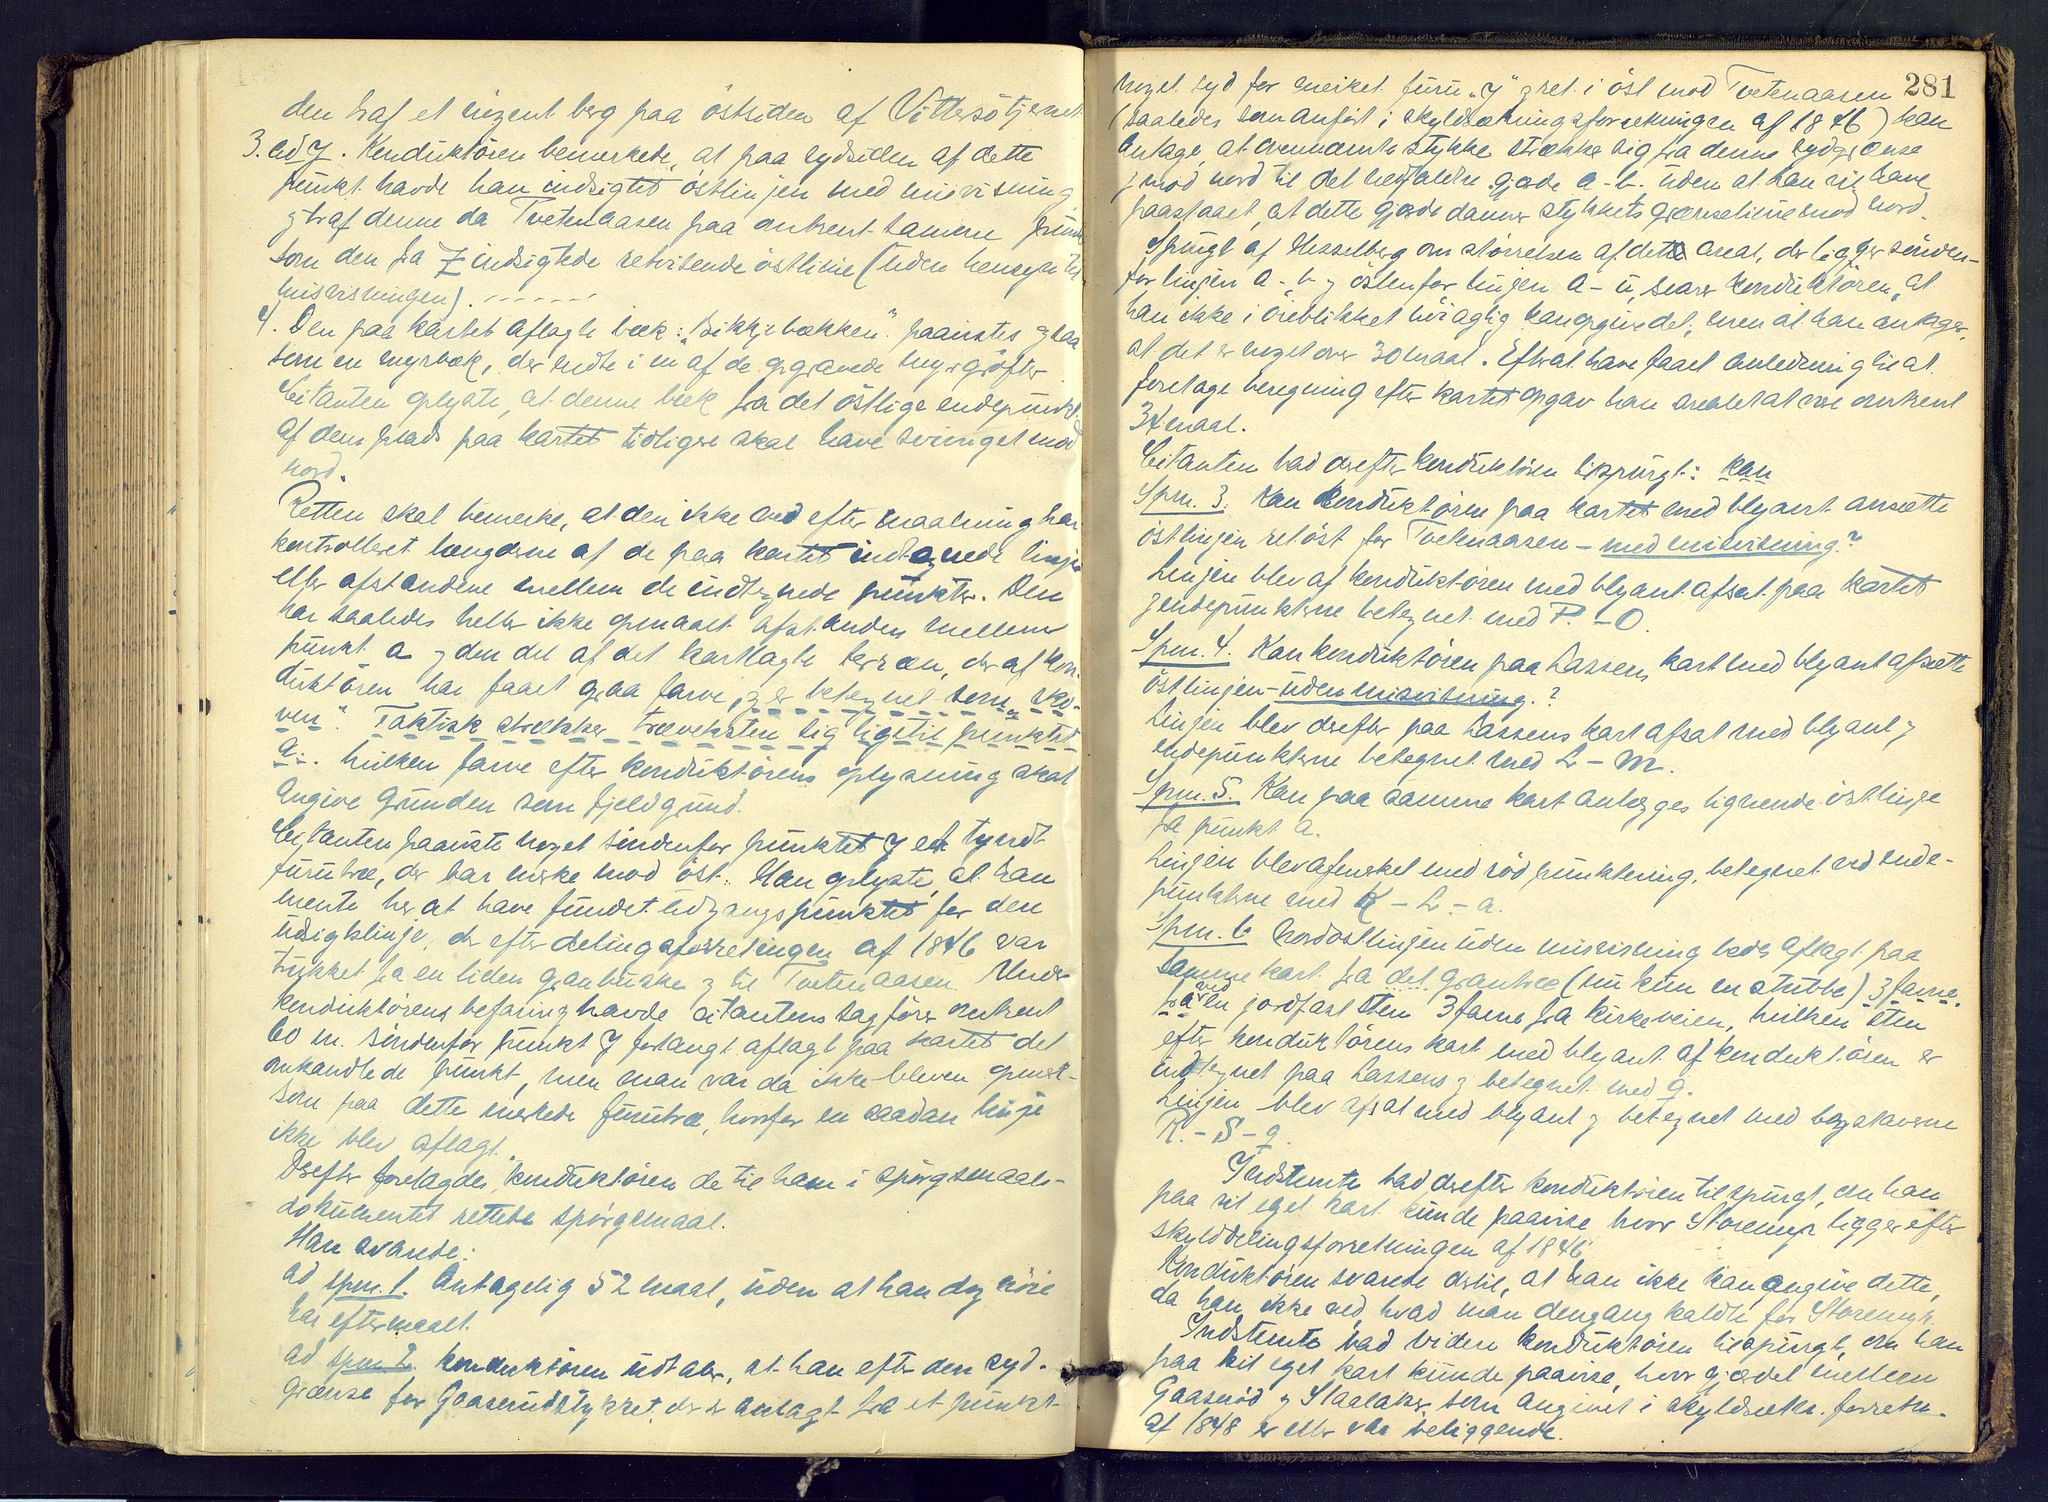 den traf et nøgent berg paa östsiden af Vittersötjernet.
3. ad y. Konduktören bemerkede, at paa sydsiden af dette
punkt havde han indsigtet östlinjen med misvisning
og traf denne da Tvetenaasen paa omtrent samme punkt
som den fra Z indsigtede retvisende östlinie (uden hensyn til
misvisningen).
4. Den paa kartet aflagte bæk: "Bikkjebækken" paavistes og saa
som en myrbæk, der endte i en af de opgravede myrgrøfter
Citanten oplyste, at denne bæk fra det östlige endepunkt
af dens plads paa kartet tidligere skal have svinget mod
nord.
Retten skal bemerke, at den ikke ved eftermaalning har
kontrolleret længderne af de paa kartet indtegnede linjer
eller afstandene mellem de indtegnede punkter. Den
har saaledes heller ikke opmaalt afstanden mellem
punkt a og den del af det kartlagte terræn, der af kon-
duktören har faaet graa farve, og er betegnet som "sko-
ven". Faktisk strækker trævæksten sig ligetil punktet
a. hvilken farve efter konduktörens oplysning skal
angive grunden som fjeldgrund.
Citanten paaviste noget söndenfor punktet y et tyndt
furutræ, der bar merke mod öst. Han oplyste, at han
mente her at have fundet udgangspunktet for den
udsigtslinje, der efter delingsforretningen af 1846 var
trukket fra en liden granbuske og til Tvetenaasen. Under
konduktörens befaring havde citantens sagfører omkrent
60 m. söndenfor punkt y forlangt aflagt paa kartet det
omhandlede punkt, men man var da ikke bleven opmerk-
som paa dette merkede furutræ, hvorfor en saadan linje
ikke blev aflagt.
Derefter forelagdes konduktören de til ham i spörgsmaals-
dokumentet rettede spörgsmaal.
Han svarede:
ad spm. 1. Antagelig 52 maal, uden at han dog nöie
har eftermaalt.
ad spm 2. Konduktören udtaler, at han efter den syd-
grænse for Gaaserudstykket, der er anlagt fra et punkt
281
noget syd for merket furu "y" og ret i öst mod Tvetenaasen
(saaledes som anført i skyldsætningsforretningen af 1846) kan
antage, at ovennævnte stykke strækker sig fra denne sydgrænse
og mod nord til det nedfaldne gjærde a-b. uden at han vil have
paastaaet, at dette gjærde danner stykkets grænselinie mod nord.
Spurgt af Hesselberg om størrelsen af dette areal, der ligger sönden-
for linjen a-b og östenfor linjen a-u, svarer konduktören, at
han ikke i öieblikket nöiagtig kan opgive det, men at han antager,
at det er noget over 30 maal. Efter at have faaet anledning til at
foretage beregning efter kartet opgav han arealet at være omkrent
34 maal.
Citanten bad derefter konduktören tilspurgt: Kan
Spm. 3. Kan konduktören paa kartet med blyant ansætte
östlinjen ret öst for Tvetenaasen - med misvisning?
Linjen blev af konduktören med blyant afsat paa kartet
og endepunkterne betegnet med P. - O.
Spm. 4. Kan konduktören paa Lassens kart med blyant afsætte
östlinjen - uden misvisning?
Linjen blev derefter paa Lassens kart afsat med blyant og
endepunkterne betegnet med L - M.
Spm. 5. Kan paa samme kart anlægges lignende östlinje
fra punkt a.
Linjen blev afmerket med röd punktering, betegnet ved ende-
punkterne med K - L - a.
Spm. 6 Nordostlinjen uden misvisning bedes aflagt paa
samme kart fra det grantræ (nu kun en stubbe) 3 favne
fra ved en jordfast sten 3 favne fra kirkeveien, hvilken sten
efter konduktörens kart med blyant af konduktören er
indtegnet paa Lassens og betegnet med q.
Linjen blev afsat med blyant og betegnet med bogstaverne
R. - S - q.
Indstevnte bad derefter konduktören tilspurgt, om han
paa sit eget kart kunde paavise hvor Storemyr ligger efter
skylddelingsforretningen af 1846.
Konduktören svarede dertil, at han ikke kan angive dette,
da han ikke ved, hvad man dengang kaldte for Storemyr.
Indstevnte bad videre konduktören tilspurgt, om han
paa sit eget kart kunde paavise, hvor gjærdet mellem
Gaaserød og Staalaker, som angivet i skyldsætn. forretn.
af 1848 er eller var beliggende.